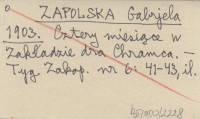 ZAPOLSKA Gabrjela
1903. Cztery miesiące w
Zakładzie dra Chramca. —
Tyg. Zakop. nr 6: 41-43, il.